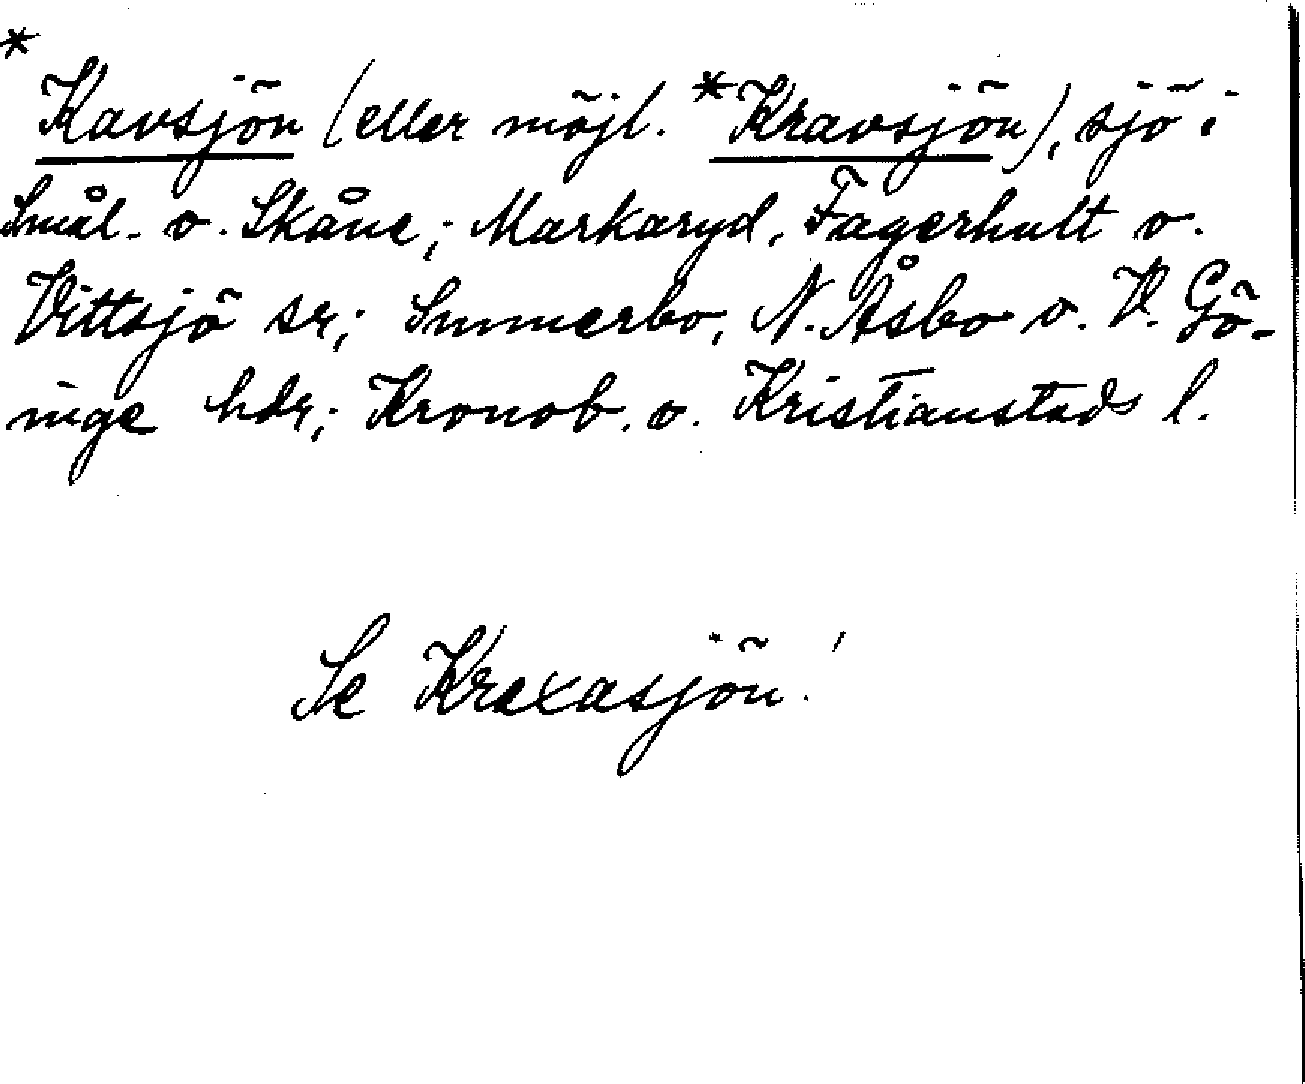 *Kavsjön (eller möjl. *Kravsjön), sjö i
Smål. o. Skåne; Markaryd, Fagerhult o.
Vittsjö sr; Sunnerbo, N. Åsbo o. V. Gö-
inge hdr; Kronob. o. Kristianstads l.
Se Kraxasjön!